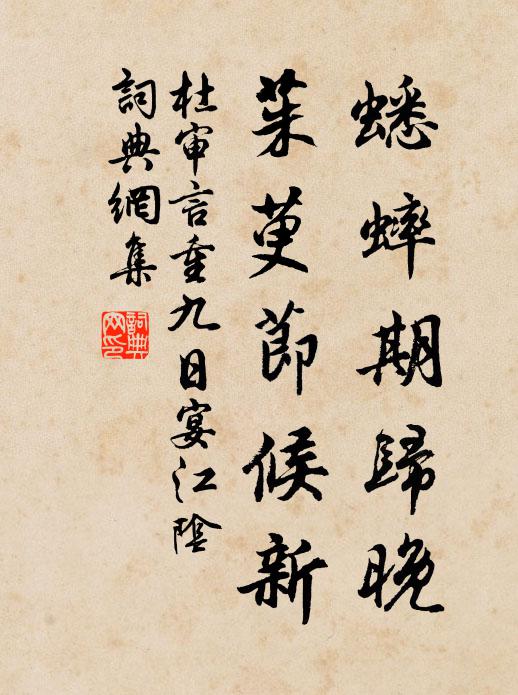 蟋蟀期歸晚
茱萸節候新
杜审言重九日宴江陰
詞典網集
詞典網印